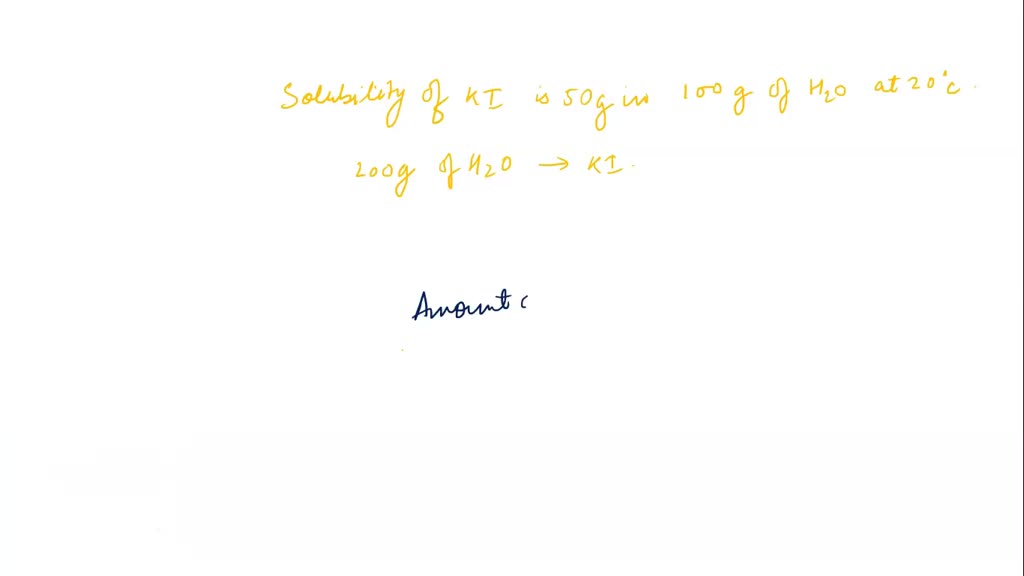 Solubility of KI is 50g in 100g of H2O at 20°C.
200g of H2O → KI.
Amount